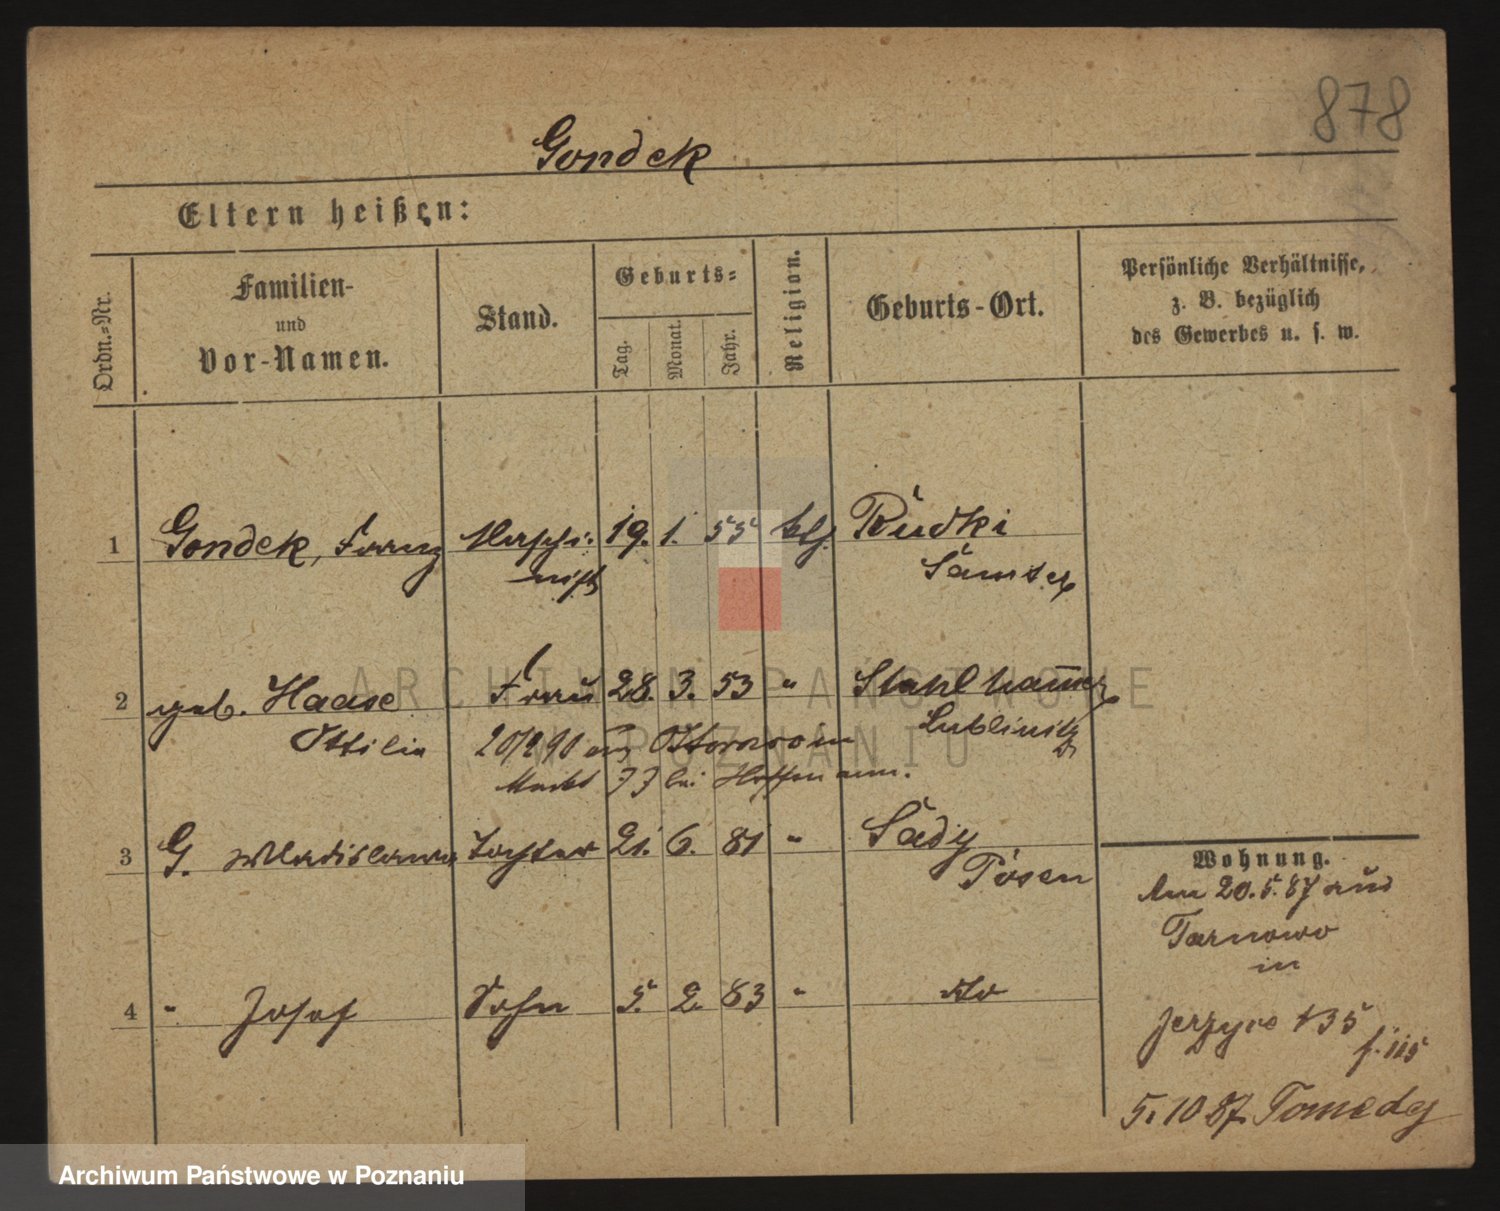 878
Gondek
Eltern heißen:
Ordn.-Nr.
Familien-
und
Vor-Namen.
Stand.
Geburts-
Tag.
Monat.
Jahr.
Religion.
Geburts-Ort.
Persönliche Verhältnisse,
z. B. bezüglich
des Gewerbes u. s. w.
1 Gondek, Franz Maschi- 19. 1. 55 ktl. Rudki
nist Samter
2 geb. Haase Frau 28. 3. 53 " Stahlhammer
Ottilie 20/2 90 Ottorowo Lublinitz
Markt 77 bei Hoffmann.
3 G. Wladislawa Tochter 21. 6. 81 " Sady
Posen
4 " Josef Sohn 5. 2. 83 " do
Wohnung.
Am 20.5.87 aus
Tarnowo
in
Jerzyce 135
f. 115
5. 10 87. Tomedy
ARCHIWUM PAŃSTWOWE
W POZNANIU
Archiwum Państwowe w Poznaniu